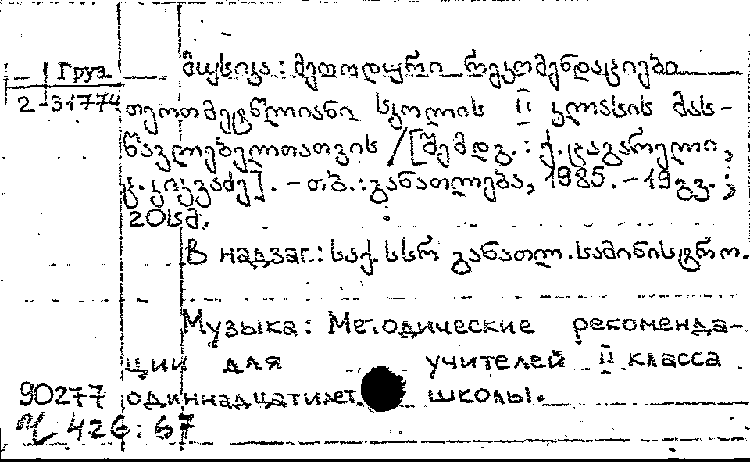 Груз
2-31774
მუსიკა: მეთოდური რეკომენდაციები
თერთმეტწლიანი სკოლის II კლასის მას-
წავლებელთათვის /[შემდგ.: ქ. ცაგარელი,
კ. კიკვაძე]. - თბ.: განათლება, 1985. - 19გვ.;
20სმ.
В надзаг.: საქ. სსრ განათლ. სამინისტრო.
Музыка: Методические рекоменда-
ции для учителей II класса
90277 одиннадцатилет школы.
426: 67